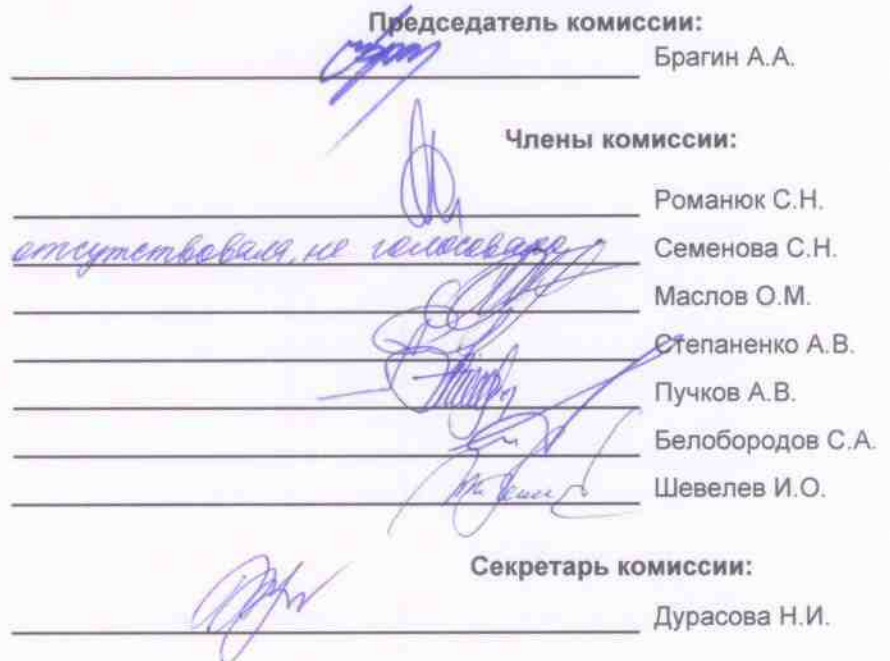 Председатель комиссии:
Брагин А.А.
Члены комиссии:
Романюк С.Н.
отсутствовала, не голосовала Семенова С.Н.
Маслов О.М.
Степаненко А.В.
Пучков А.В.
Белобородов С.А.
Шевелев И.О.
Секретарь комиссии:
Дурасова Н.И.